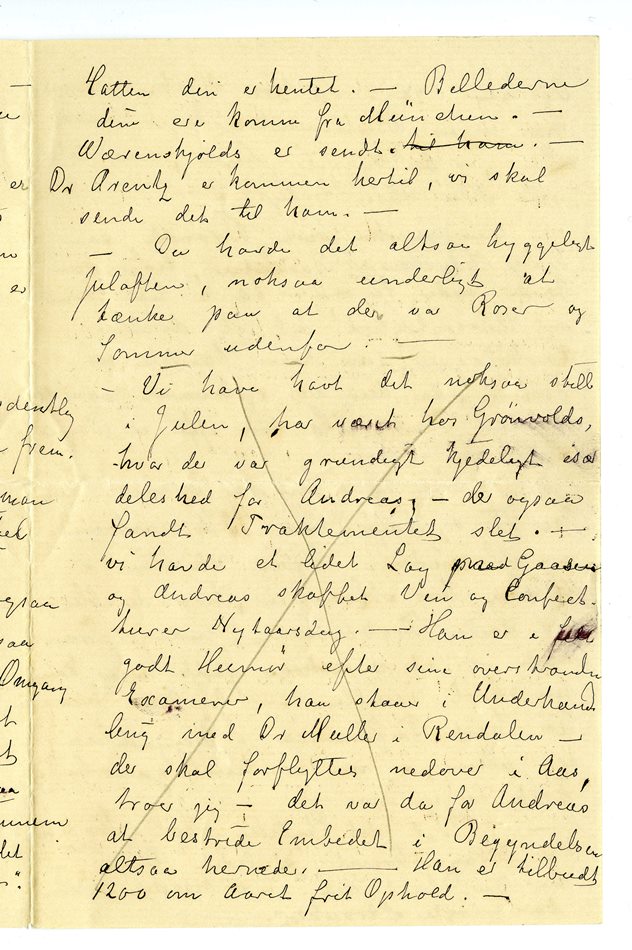 Hatten din er hentet. — Billederne
dine ere komne fra München. —
Wærenskjolds er sendt til ham. —
er Dr Arentz er kommen hertil, vi skal
sende det til ham. —
— Du havde det altsaa hyggeligt
er Juleaften, noksaa underligt at
tænke paa at der var Roser og
Sommer udenfor. —
— Vi have havt det noksaa stille
i Julen, har været hos Grönvolds,
hvor der var grundigt kjedeligt især
deleshed for Andreas, — der ogsaa
fandt Traktementet slet. —
vi havde et lidet Lag med Gaasen
og Andreas skaffet Vin og Confect-
turer Nytaarsdag. — Han er i
godt Humør efter sine overstandne
Examener, han staar i Underhand
ling med Dr Müller i Rendalen —
der skal forflyttes nedover i Aas,
troer jeg — det var da for Andreas
at bestride Embedet i Begyndelsen
altsaa hernede. — Han er tilbudt
1200 om Aaret frit Ophold. —
frem.
Omgang